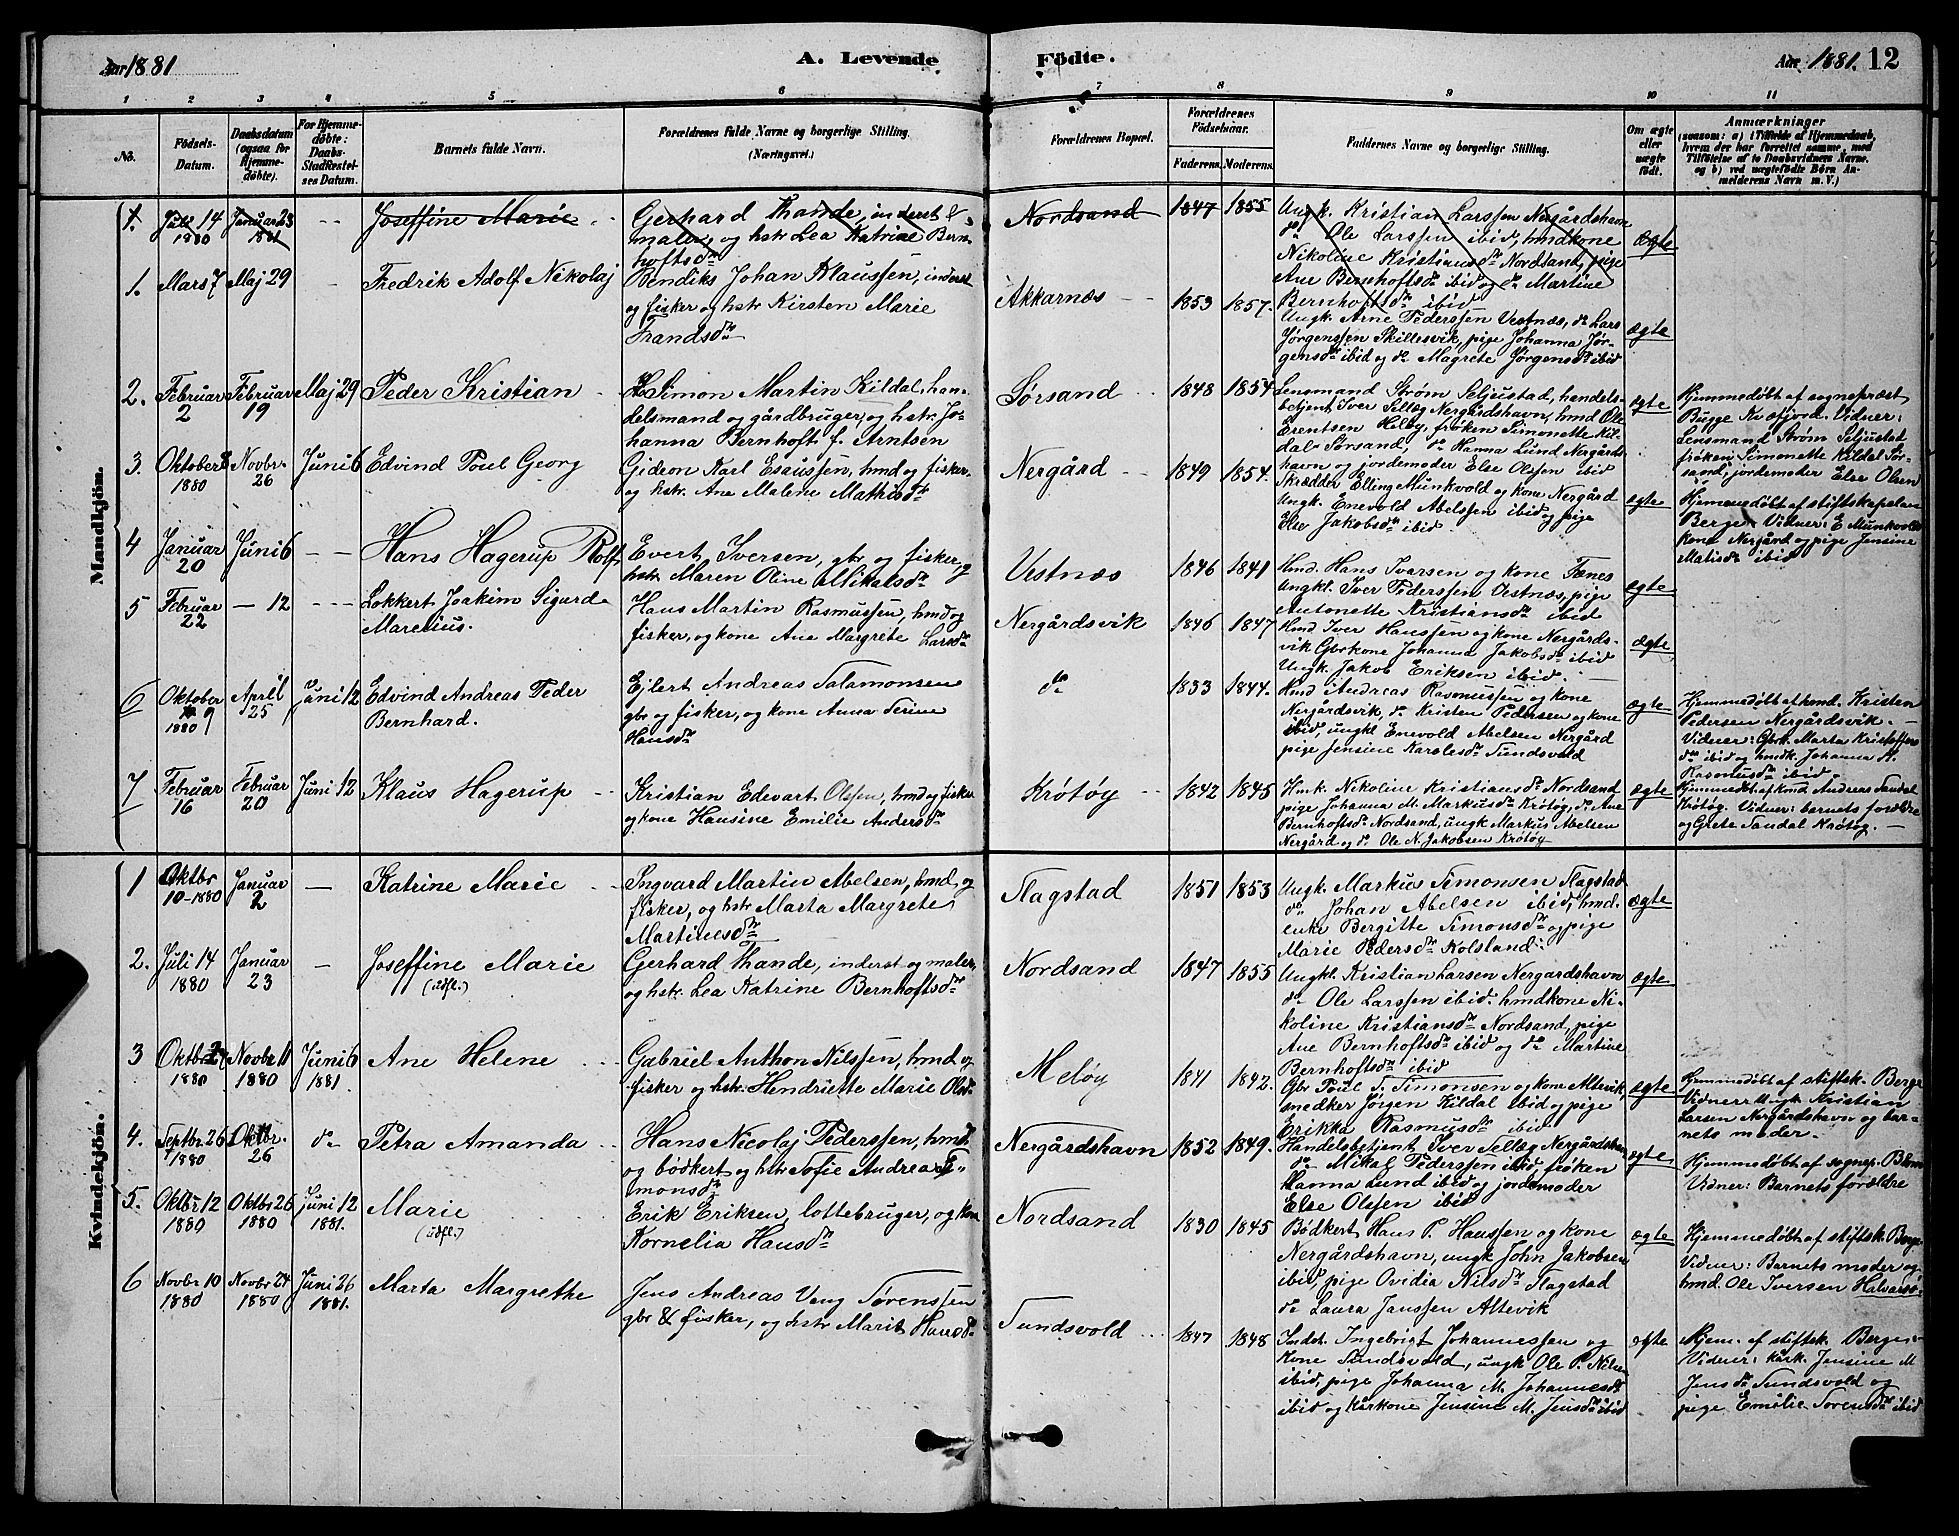 Aar 1881
A. Levende
Födte.
Aar 1881.
12
1 2 3 4 5 6 7 8 9 10 11
No.
Födsels-
Datum.
Daabsdatum
(ogsaa for
Hjemme-
döbte).
For Hjemme-
döbte:
Daabs-
Stadfæstel-
ses Datum.
Barnets fulde Navn.
Forældrenes fulde Navne og borgerlige Stilling.
(Næringsvei.)
Forældrenes Bopæl.
Forældrenes
Födselsaar.
Faderens. Moderens.
Faddernes Navne og borgerlige Stilling.
Om ægte
eller
uægte
födt.
Anmærkninger
(saasom: a) i Tilfælde af Hjemmedaab,
hvem der har forrettet samme, med
Tilföielse af to Daabsvidners Navne.
og b) ved uægtefödte Börn An-
melderens Navn m. V.)
Mandkjön.
1. Juli 14
1880
Januar 23
1881
Joseffine Marie
Gerhard Thande, inderst &
maler, og hstr Lea Katrine Bern-
hoftsdr
Nordsand
1847 1855
Ungk. Kristian Larssen Nergårdshavn
do Ole Larssen ibid, hmdkone
Nikoline Kristiansdr Nordsand, pige
Ane Bernhoftsdr ibid og do Martine
Bernhoftsdr ibid
ægte
1. Mars 7 Maj 29
Fredrik Adolf Nikolaj
Bendiks Johan Klaussen, inderst
og fisker og hstr Kirsten Marie
Frandsdr
Akkarnæs
1853 1857.
Ungk. Arne Pederssen Vestnæs, do Lars
Jørgenssen Skillesvik, pige Johanna Jør-
gensdr ibid og do Magrete Jørgensdr ibid
ægte
2. Februar
2
Februar
19
Maj 29
Peder Kristian
Simon Martin Kildal, han-
delsmand og gårdbruger, og hstr Jo-
hanna Bernhoft f. Arntsen
Sørsand
1848 1854
Lensmand Strøm Seljestad, handels-
betjent Iver Sellæg Nergårdshavn, hmd Ole
Erentsen Hiløy, frøken Simonette Kil-
dal Sørsand, do Hanna Lund Nergårds-
havn og jordemoder Else Olssen ibid
ægte
Hjemmedøbt af sognepræst
Bugge Kvæfjord. Vidner:
Lensmand Strøm Seljestad
frøken Simonette Kildal Sør-
sand, jordemoder Else Olsen
3. Oktober 8
1880
Novbr.
26
Juni 6
Edvind Poul Georg
Gideon Karl Esaussen, hmd og fisker
og hstr. Ane Malene Mathisdr
Nergård
1849 1854.
Skrædder Elling Munkvold og kone Nergård
Ungk. Enevold Abelssen ibid og pige
Elev Jakobsdr ibid.
ægte
Hjemmedøbt af stiftskapelan
Berge. Vidner: E. Munkvolds
kone Nergård og pige Jensine
Matisdr ibid
4 Januar
20
Juni 6
Hans Hagerup Rolf
Evert Iversen, gbr og fisker, og
hstr Maren Oline Mikalsdr
Vestnæs
1846 1841
Hmd. Hans Ivarsen og kone Fænes
Ungkl. Iver Pederssen Vestnæs, pige
Antonette Kristiansdr ibid
ægte
5 Februar
22
— 12
Lokkert Joakim Sigurd
Marelius.
Hans Martin Rasmussen, hmd og
fisker, og kone Ane Margrete Larsdr
Nergårdsvik
1846 1847
Hmd Iver Hanssen og kone Nergårds-
vik Gbrkone Johanna Jakobsdr ibid
Ungk. Jakob Eriksen ibid.
ægte
6 Oktober
9
1880
April
25
Juni 12
Edvind Andreas Peder
Bernhard.
Ejlert Andreas Salamonsen
gbr og fisker, og kone Anna Serine
Hansdr
do
1833 1844.
Hmd Andreas Rasmussen og kone
Nergårdsvik, do Kristen Pedersen og kone
ibid, ungkl Enevold Abelsen Nergård
pige Jensine Karolesdr Sundsvold
ægte
Hjemmedøbt af hmd. Kristen
Pedersen Nergårdsvik.
Vidner: Gbrk. Marta Kristoffers-
dr ibid og hmdk. Johanna H.
Rasmusdr ibid.
7 Februar
16
Februar
20
Juni 12
Klaus Hagerup
Kristian Edevart Olssen, hmd og fisker
og kone Hansine Emilie Andersdr
Krøtøy
1842 1845
Hmk. Nikoline Kristiansdr Nordsand,
pige Johanna M. Markusdr Krøtøy, do Ane
Bernhoftsdr Nordsand, ungk Markus Abelsen
Nergård og do Ole N. Jakobsen Krøtøy
ægte
Hjemmedøbt af Kond Andreas Sandal
Krøtøy. Vidner: barnets forældre
og Grete Sandal Krøtøy.
Kvindekjön.
1 Oktbr
10-1880
Januar
2
Katrine Marie
Ingvard Martin Abelsen, hmd og
fisker, og hstr Marta Margrete
Martinesdr
Flagstad
1851 1853
Ungk. Markus Simonsen Flagstad
do Johan Abelsen ibid, hmd.
enke Bergitte Simonsdr og pige
Marie Pedersdr Kolsland
ægte
2. Juli 14
1880
Januar
23
Joseffine Marie
(udfl.)
Gerhard Thande, inderst og maler,
og hstr. Lea Katrine Bernhoftsdr
Nordsand
1847 1855
Ungkl. Kristian Larsen Nergardshavn
do Ole Larssen ibid. hmdkone Ni-
koline Kristiansdr Nordsand, pige
Ane Bernhoftsdr ibid og do Martine
Bernhoftsdr ibid
ægte
3 Oktbr 24
1880
Novbr 11
1880
Juni 6
1881.
Ane Helene
Gabriel Anthon Nilssen, hmd og
fisker og hstr. Hendriette Marie Olsdr
Meløy
1841 1842.
Gbr Poul S. Simonsen og kone Altevik,
snedker Jørgen Kildal ibid og pige
Erikka Rasmusdr ibid
ægte
Hjemmedøbt af stiftsk. Berge
Vidner: Ungk Kristian
Larsen Nergårdshavn og bar-
nets moder.
4. Septbr. 26
1880
Oktbr.
26
do
Petra Amanda
Hans Nicolaj Pederssen, hmd
og bødkert og hstr Sofie Andrea Si-
monsdr
Nergårdshavn
1852 1849.
Handelsbetjent Iver Sellæg Nergårdshavn
do Mikal Pederssen ibid, frøken
Hanna Lund ibid og jordemoder
Else Olssen ibid
ægte
Hjemmedøbt af sognep.
Vidner: Barnets forældre
5. Oktbr 12
1880
Oktbr 26
1880
Juni 12
1881.
Marie
(udfl.)
Erik Eriksen, lottebruger, og kone
Kornelia Hansdr
Nordsand
1830 1845
Bødkert Hans P. Hanssen og kone
Nergårdshavn, ungk John Jakobsen
ibid, pige Ovidia Nilsdr Flagstad
do Laura Janssen Altevik
ægte
Hjemmedøbt af stiftsk. Berge
Vidner: Barnets moder og
hmd. Ole Iversen
6 Novbr 10
1880
Novbr 24
1880
Juni 26
1881.
Marta Margrethe
Jens Andreas Veng Sørenssen
gbr & fisker, og hstr Marit Hansdr
Sundsvold
1847 1848
Indst. Ingebrigt Johannessen og
Kone Sundsvold, ungk Ole P. Nilsen
ibid, pige Johanna M. Johannesdr
ibid og kårkone Jensine M. Jensdr ibid
ægte
Hjem. af stiftsk. Berge
Vidner: kårk. Jensine M
Jensdr Sundsvold og
pige Emelie Sørensdr ibid